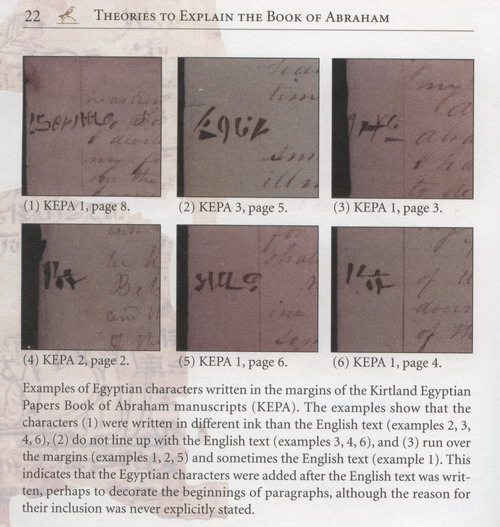 22 THEORIES TO EXPLAIN THE BOOK OF ABRAHAM
(1) KEPA 1, page 8.
(2) KEPA 3, page 5.
(3) KEPA 1, page 3.
(4) KEPA 2, page 2.
(5) KEPA 1, page 6.
(6) KEPA 1, page 4.
Examples of Egyptian characters written in the margins of the Kirtland Egyptian
Papers Book of Abraham manuscripts (KEPA). The examples show that the
characters (1) were written in different ink than the English text (examples 2, 3,
4, 6), (2) do not line up with the English text (examples 3, 4, 6), and (3) run over
the margins (examples 1, 2, 5) and sometimes the English text (example 1). This
indicates that the Egyptian characters were added after the English text was writ-
ten, perhaps to decorate the beginnings of paragraphs, although the reason for
their inclusion was never explicitly stated.